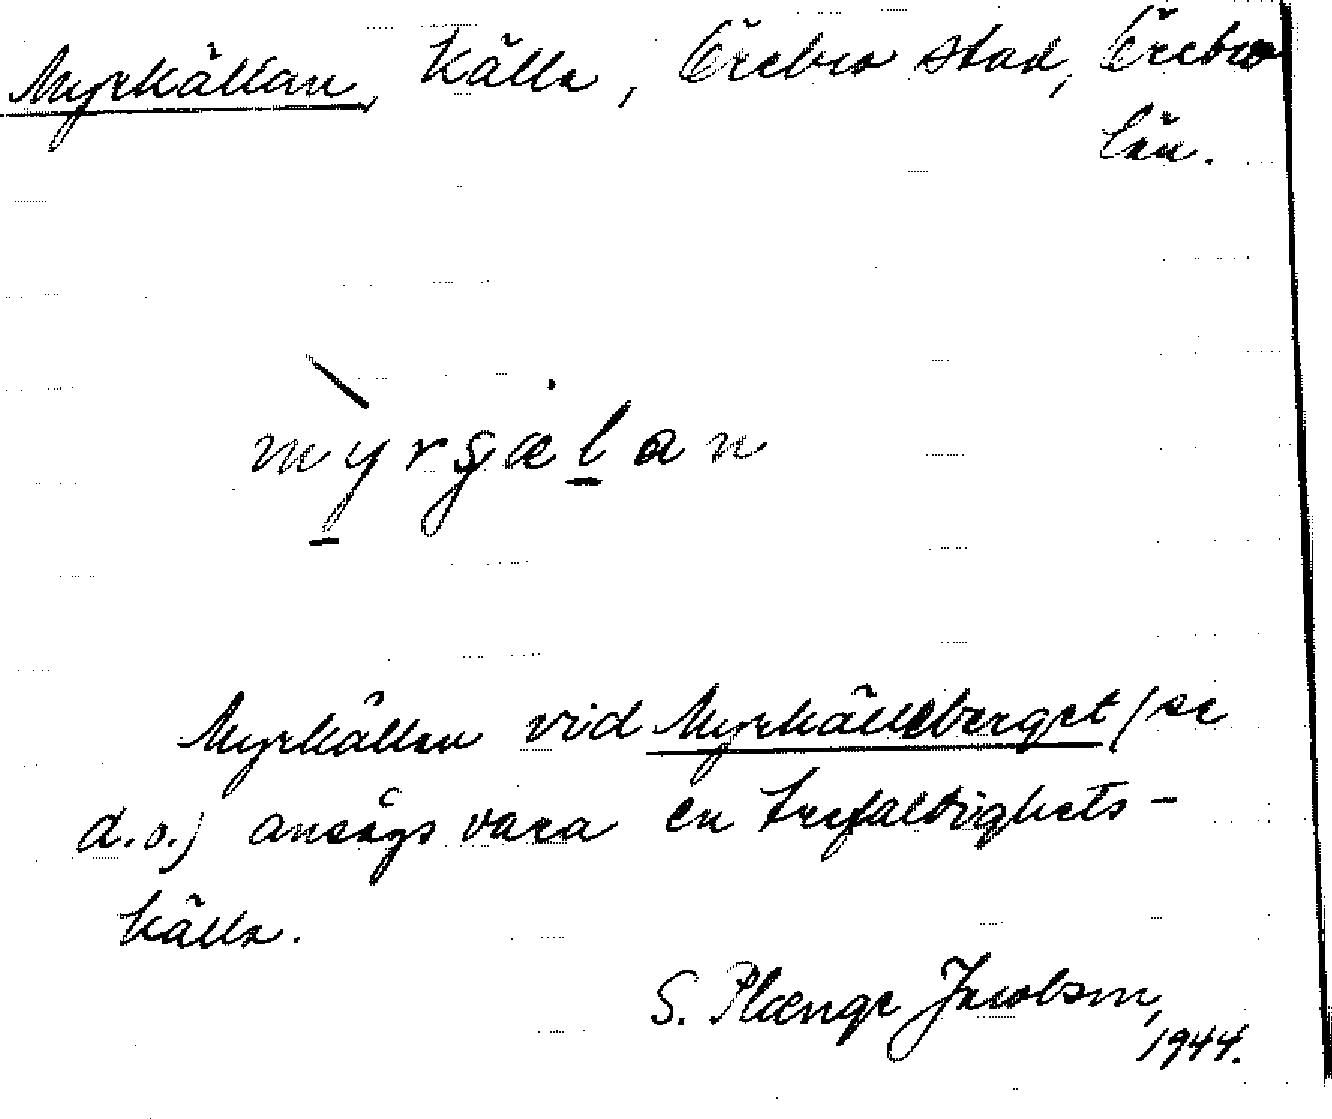 Myrkällan, källa, Örebro stad, Örebro
län.
myrçælan
Myrkällan vid Myrkälleberget (se
d.o.) ansågs vara en trefaldighets-
källa.
S. Plænge Jacobson,
1944.